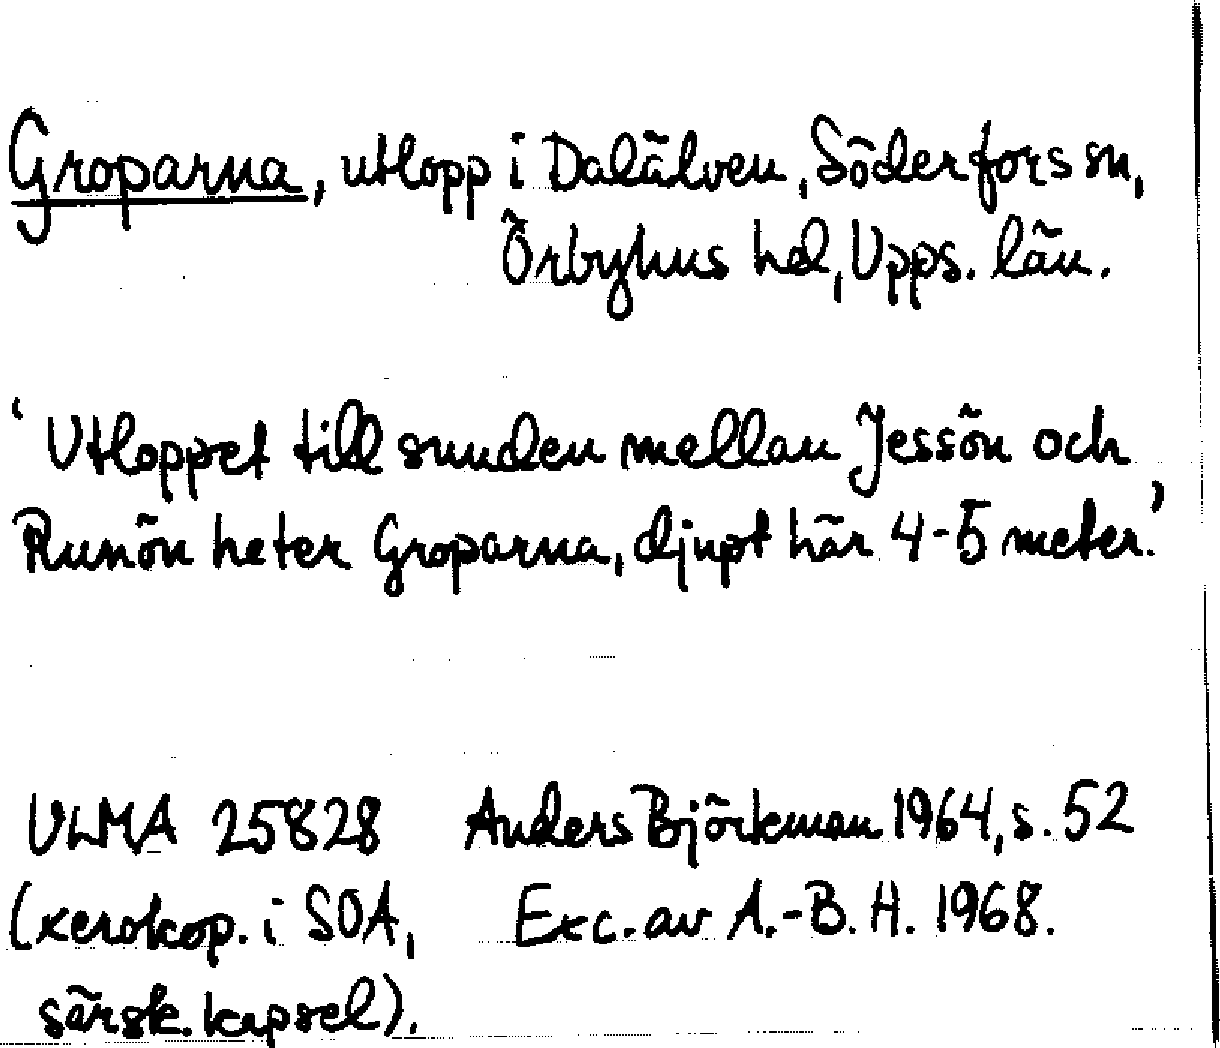 Groparna, utlopp i Dalälven, Söderfors sn,
Örbyhus hd, Upps. län.
'Utloppet till sunden mellan Jessön och
Runön heter Groparna, djupt här 4-5 meter.'
ULMA 25828 Anders Björkman 1964, s. 52
(xerokop. i SOA, Exc. av A.-B. H. 1968.
särsk. kapsel).